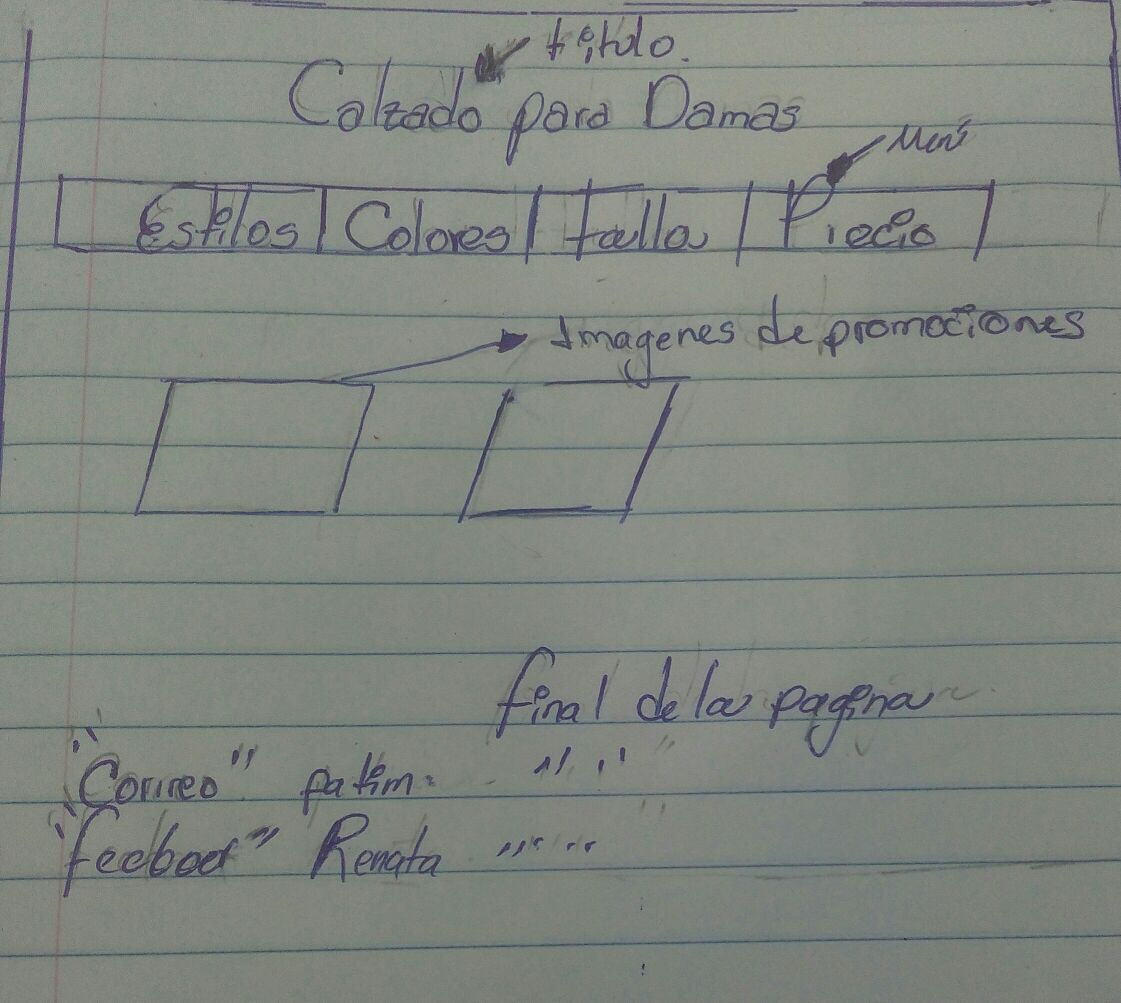 título.
Calzado para Damas
Menú
Estilos Colores talla Precio
Imagenes de promociones
final de la pagina
"Correo" patim.
"feeboot" Renata